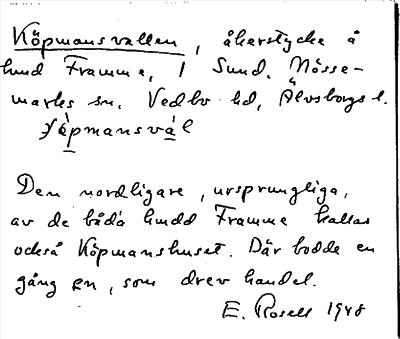 Köpmansvallen, åkerstycke å
hmd Framme, 1 Sund, Nösse-
marks sn. Vedbo hd, Älvsborgs l.
𝑦öpmansvàl
Den nordligare, ursprungliga,
av de båda hmdd Framme kallas
också Köpmanshuset. Där bodde en
gång en, som drev handel.
E. Rosell 1948